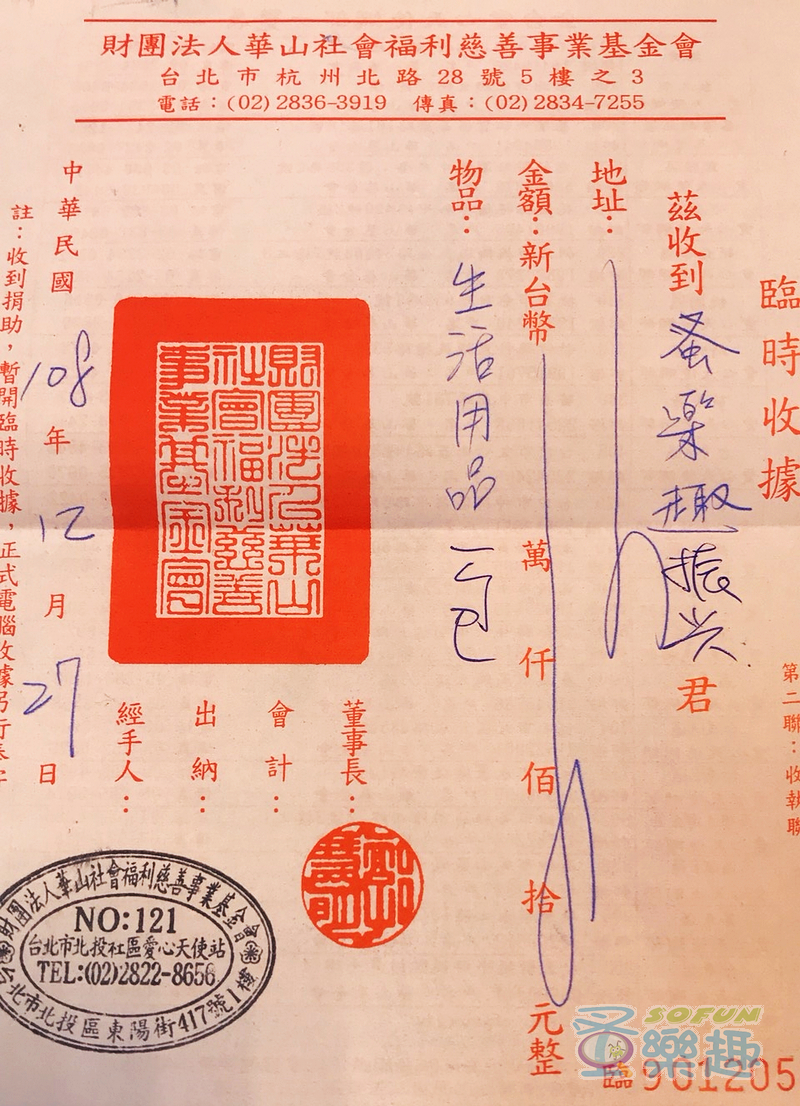 財團法人華山社會福利慈善事業基金會
台北市杭州北路28號5樓之3
電話：(02)2836-3919 傳真：(02)2834-7255
臨時收據
茲收到 蚤樂趣振兴 君
地址：
金額：新台幣 萬 仟 佰 拾 元整
物品：生活用品一包
董事長：
會計：
出納：
經手人：
財團法人華山社會福利慈善事業基金會
中華民國 108 年 12 月 27 日
註：收到捐助，暫開臨時收據，正式電腦收據另行奉寄
第二聯：收執聯
財團法人華山社會福利慈善事業基金會
NO:121
台北市北投社區愛心天使站
TEL:(02)2822-8656
台北市北投區東陽街417號1樓
SOFUN
蚤樂趣
臨 901205